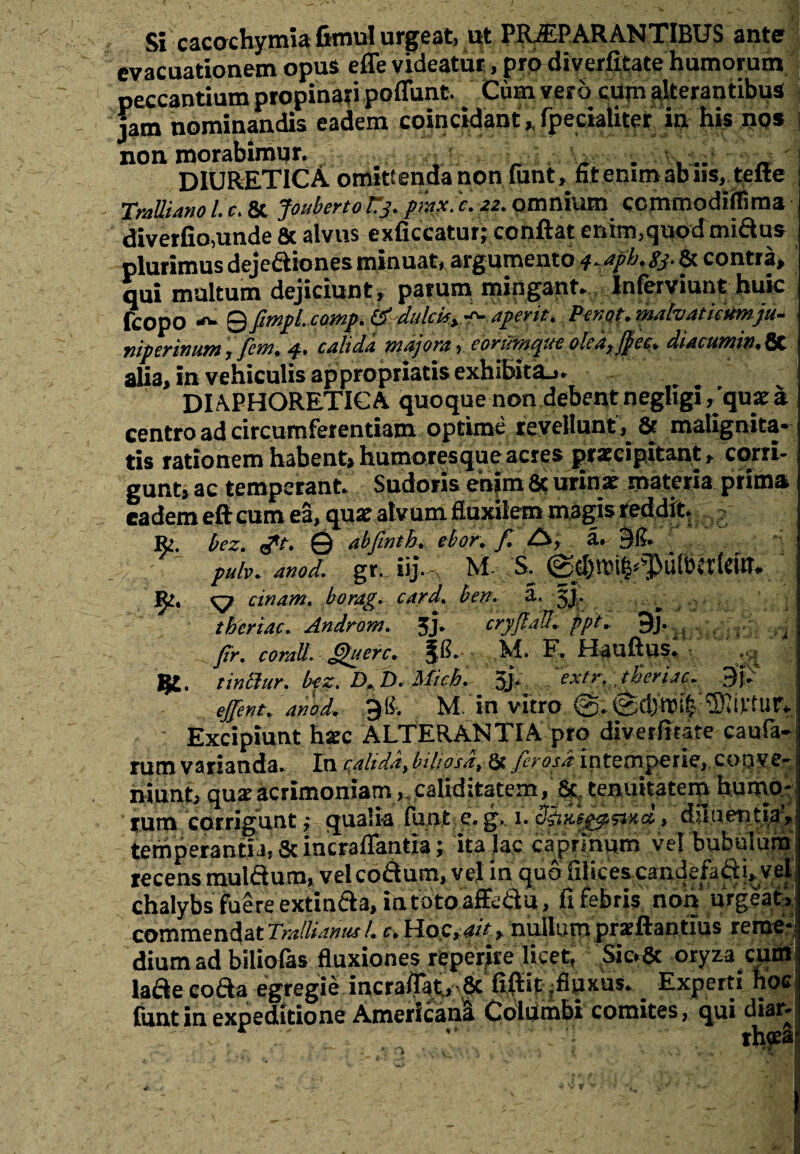 Si cacochymia ſimul urgeat, ut PRÆPARANTIBUS ante
evacuationem opus eſſe videatur, pro diverſitate humorum
peccantium propinari poſſunt. Cùm verò cum alterantibus
jam nominandis eadem coincidant, ſpecialiter in his nos
non morabimur.
DIURETICA omittenda non ſunt, fit enim ab iis, teſte
Tralliano l. c. & Jouberto prax. c. 22. omnium commodiſſima
diverſio, unde & alvus exſiccatur; conſtat enim, quod mictus
plurimus dejectiones minuat, argumento 4. aph. 83. & contrà,
qui multum dejiciunt, parum mingant. Inſerviunt huic
ſcopo ſimpl. comp. & dulcis, aperit. Penot. malvaticum ju-
niperinum, ſem. 4. calida majora, eorumque olea, ſpec. diacumin. &
alia, in vehiculis appropriatis exhibita.
DIAPHORETICA quoque non debent negligi, quæ à
centro ad circumferentiam optimè revellunt, & malignita-
tis rationem habent, humoresque acres præcipitant, corri-
gunt, ac temperant. Sudoris enim & urinæ materia prima
eadem eſt cum eâ, quæ alvum fluxilem magis reddit.
℞. bez. abſinth. ebor. ſ. △, a. ℈ß.
pulv. anod. gr. iij. M. S. Schwitz-Pülverlein.
℞. cinam. borag. card. ben. a. ʒj.
theriac. Androm. ʒj. cryſtall. ppt. ℈j.
ſir. corall. Querc. ℥ß. M. F. Hauſtus.
℞. tinctur. bez. D. D. Mich. ʒj. extr. theriac. ℈j.
eſſent. anod. ℈ß. M. in vitro S. Schwitz Mixtur.
Excipiunt hæc ALTERANTIA pro diverſitate cauſa-
rum varianda. In calidâ, bilioſâ, & ſeroſâ intemperie, conve-
niunt, quæ acrimoniam, caliditatem, & tenuitatem humo-
rum corrigunt; qualia ſunt e. g. 1. diluentia,
temperantia, & incraſſantia; ita lac caprinum vel bubulum
recens mulctum, vel coctum, vel in quo ſilices candefacti, vel
chalybs fuêre extincta, in toto affectu, ſi febris non urgeat,
commendat Trallianus l. c. Hoc, ait, nullum præſtantius reme-
dium ad bilioſas fluxiones reperire licet. Sic & oryza cum
lacte cocta egregiè incraſſat, & ſiſtit fluxus. Experti hoc
ſunt in expeditione Americanâ Columbi comites, qui diar-
rhœâ